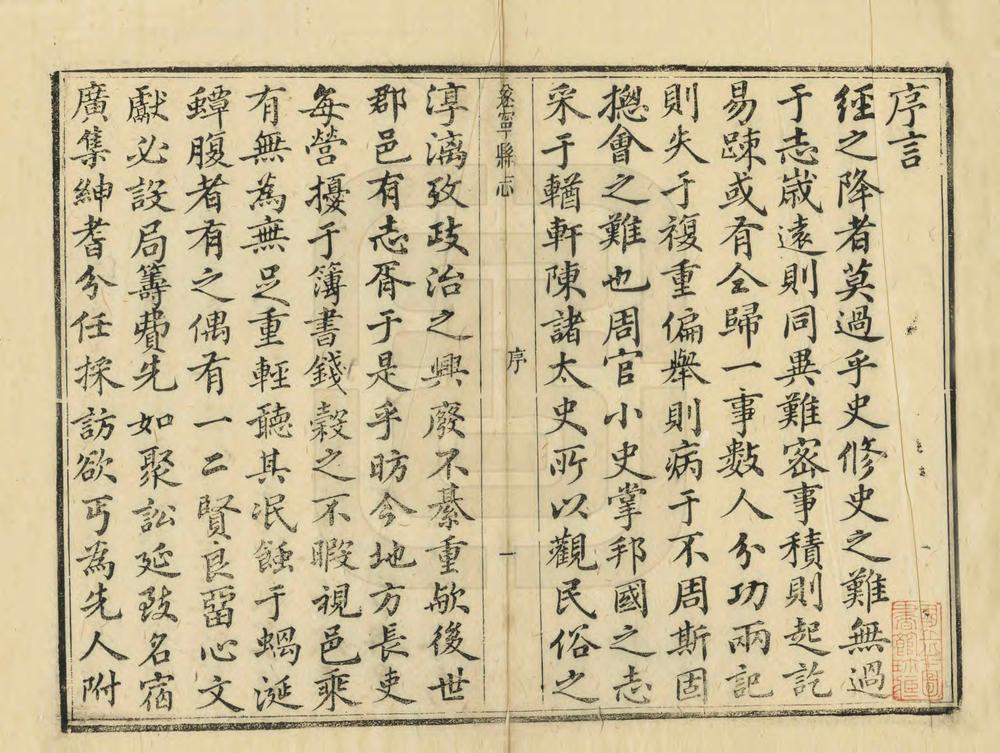 序言
經之降者莫過乎史修史之難無過
于志歲遠則同異難密事積則起訖
易踈或有全歸一事數人分功兩記
則失于複重偏舉則病于不周斯固
摠會之難也周官小史掌邦國之志
采于輶軒陳諸太史所以觀民俗之
遂寧縣志 序 一
淳漓攷政治之興廢不綦重歟後世
郡邑有志胥于是乎昉今地方長吏
每營擾于簿書錢穀之不暇視邑乘
有無為無足重輕聽其泯蝕于蝸涎
蟫腹者有之偶有一二賢良畱心文
獻必設局籌費先如聚訟延致名宿
廣集紳耆分任採訪欲丐為先人附